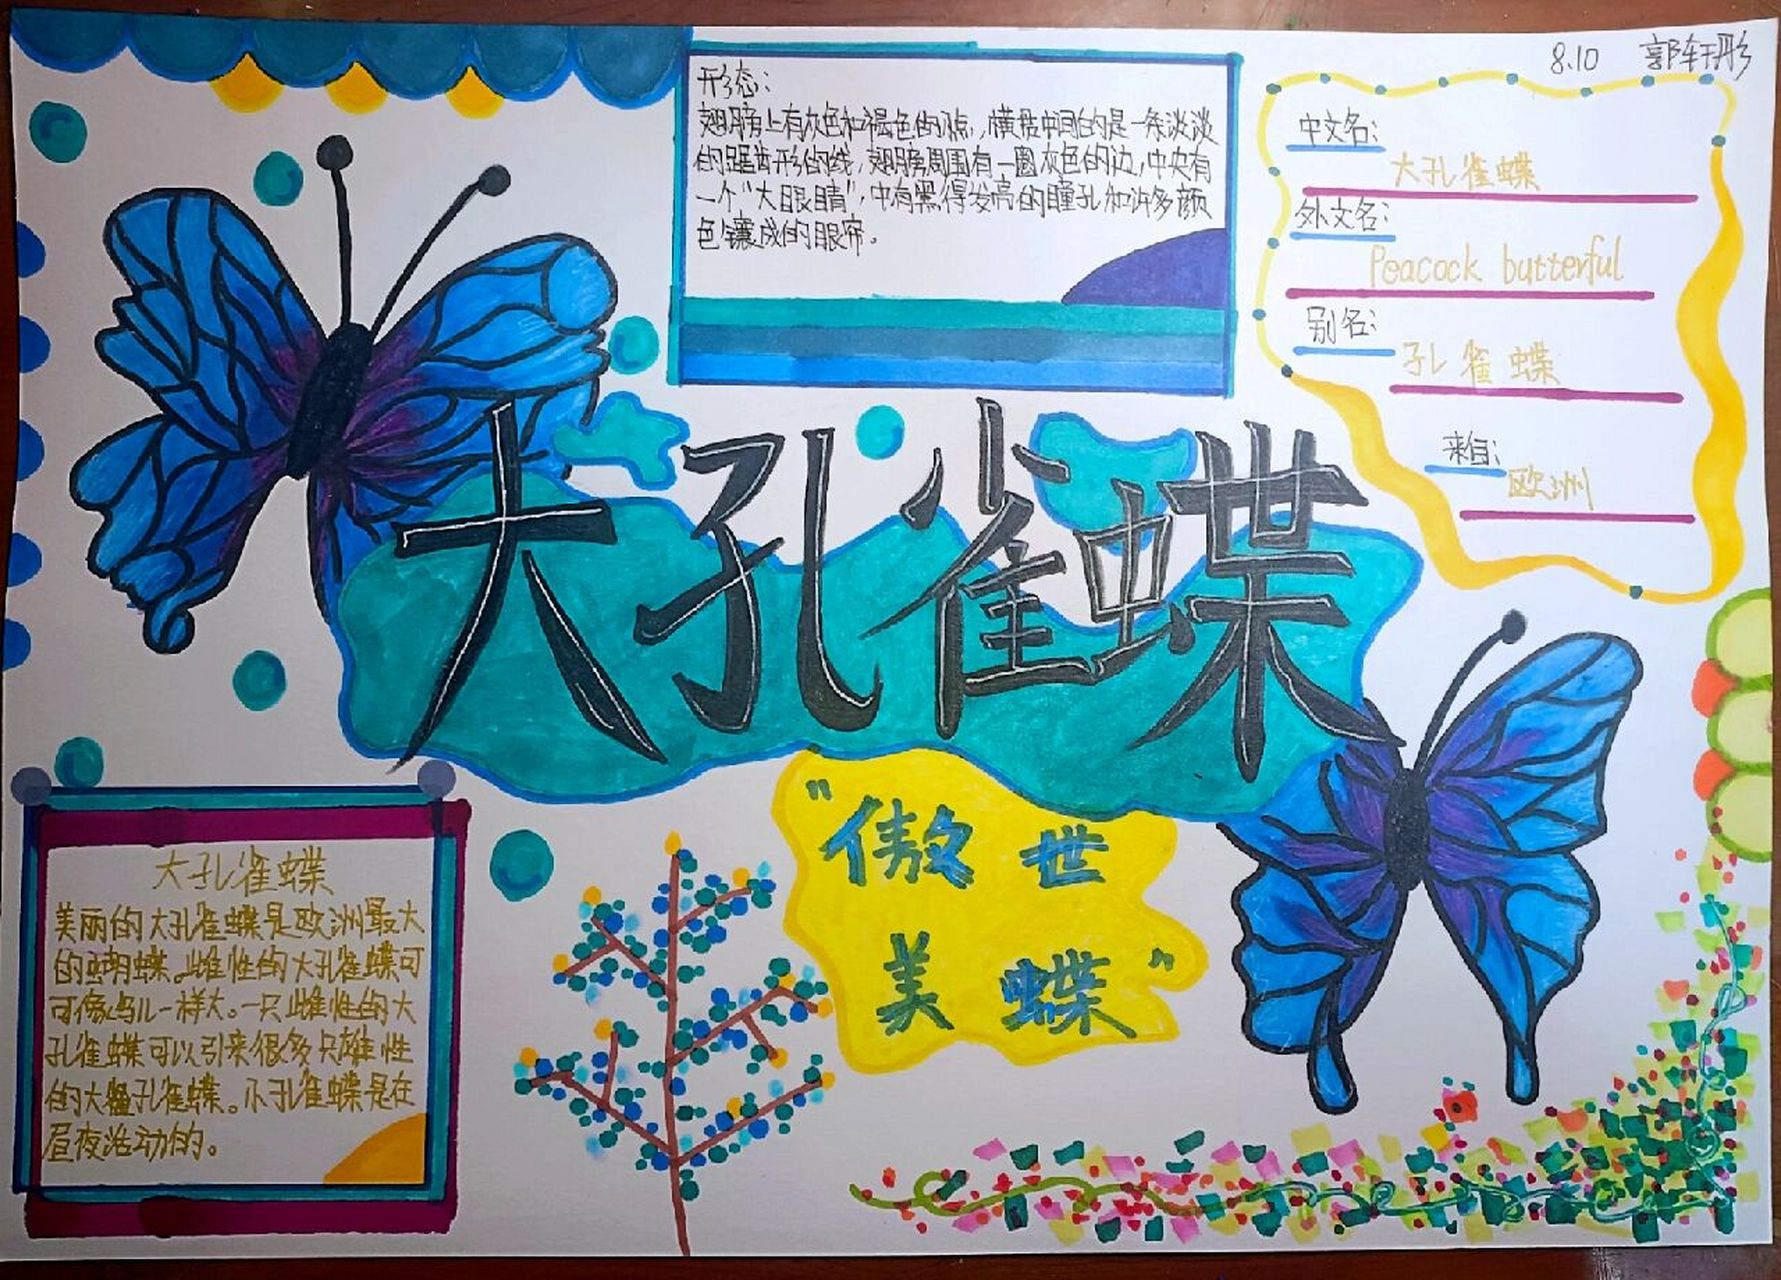 8.10 郭轩彤
形态：
翅膀上有灰色和褐色的小点，横贯中间的是一条淡淡
的锯齿形的线，翅膀周围有一圈灰色的边，中央有
一个“大眼睛”，中有黑得发亮的瞳孔和许多颜
色镶成的眼帘。
中文名：
大孔雀蝶
外文名：
Peacock butterful
别名：
孔雀蝶
来自：
欧洲
大孔雀蝶
“傲世
美蝶”
大孔雀蝶
美丽的大孔雀蝶是欧洲最大
的蝴蝶。雌性的大孔雀蝶可
可像鸟儿一样大。一只雌性的大
孔雀蝶可以引来很多只雄性
的大孔雀蝶。小孔雀蝶是在
昼夜活动的。